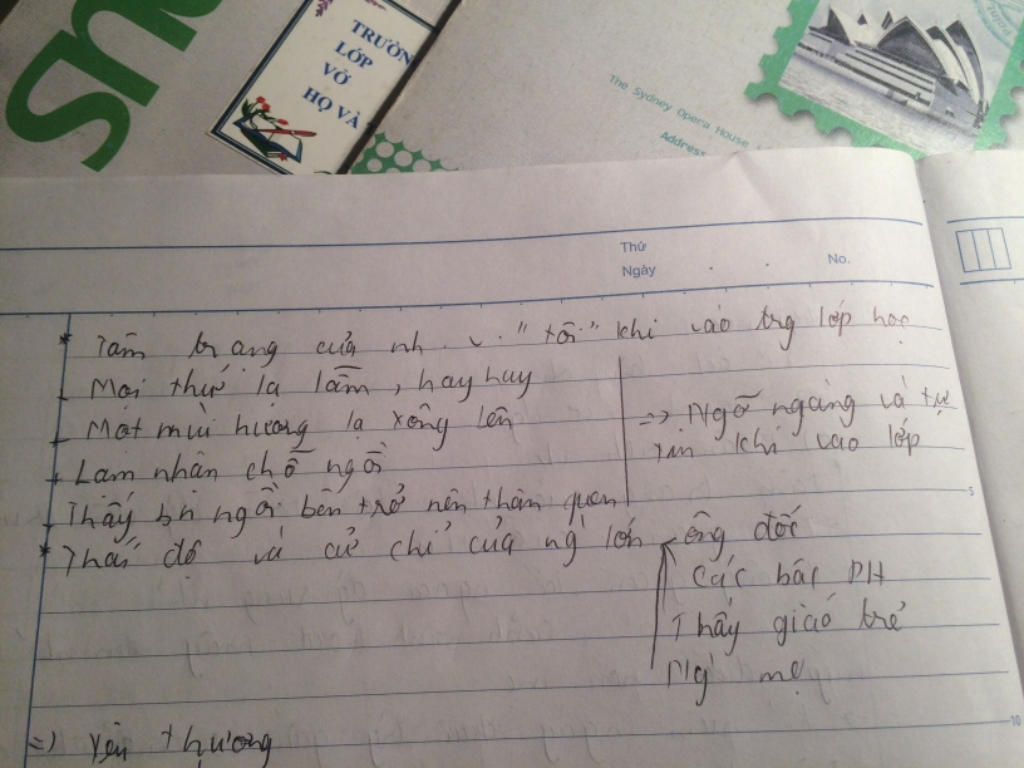 SNU
TRƯỜN
LỚP
VỞ
HỌ VÀ
The Sydney Opera House
Address
Thứ
Ngày
No.
* Tâm trạng của nh.v. "tôi" khi vào trg lớp học
- Mọi thứ lạ lắm, hay hay
- Một mùi hương lạ xông lên
+ Lạm nhận chỗ ngồi
- Thấy bn ngồi bên trở nên thân quen
=> Ngỡ ngàng và tự
tin khi vào lớp
5
* Thái độ và cử chỉ của ng lớn
ông đốc
Các bác PH
Thầy giáo trẻ
Ng mẹ
10
=> Yêu thương